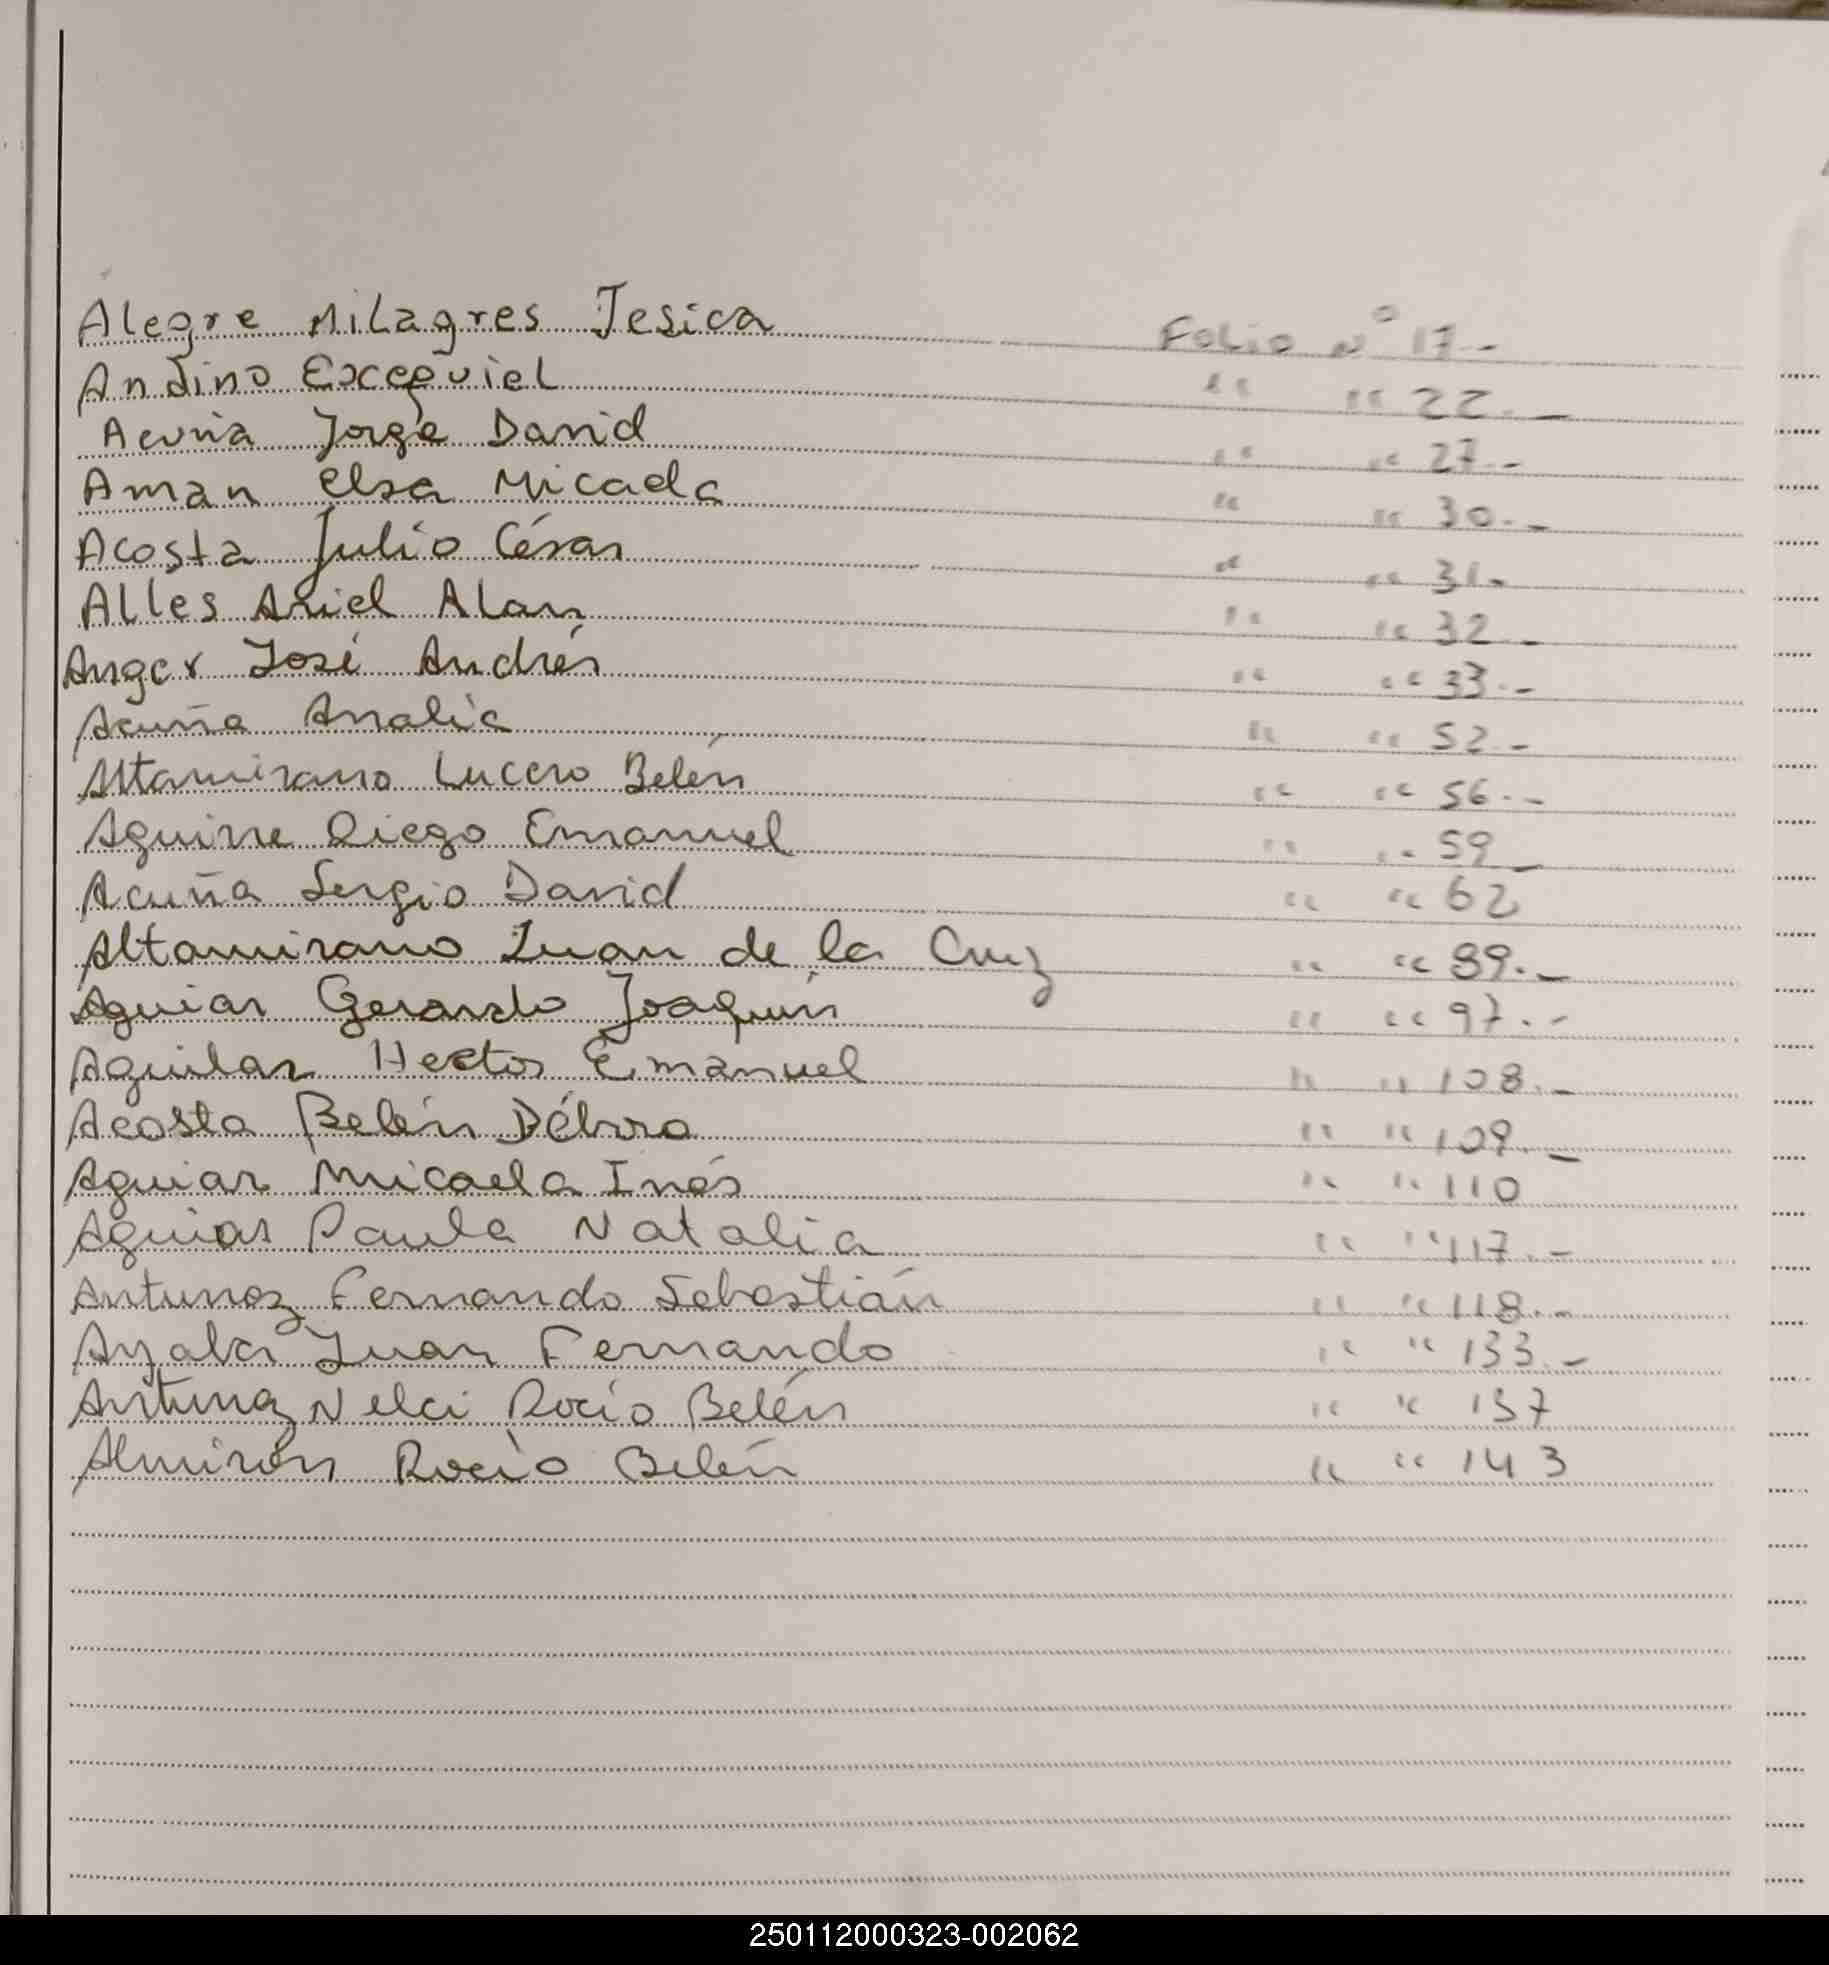 Alegre Milagres Jesica Folio N° 17.-
Andino Excequiel " " 22.-
Acuña Jorge David " " 27.-
Aman Elsa Micaela " " 30.-
Acosta Julio César " " 31.-
Alles Ariel Alan " " 32.-
Anger José Andrés " " 33.-
Acuña Analia " " 52.-
Altamirano Lucero Belén " " 56.-
Aguirre Diego Emanuel " " 59_
Acuña Sergio David " " 62
Altamirano Juan de la Cruz " " 89.-
Aguiar Gerardo Joaquín " " 97.-
Aguilar Hector Emanuel " " 108.-
Acosta Belén Débora " " 109.-
Aguiar Micaela Inés " " 110
Aguiar Paula Natalia " " 117.-
Antunez Fernando Sebastián " " 118.-
Ayala Juan Fernando " " 133.-
Antunez Nelci Rocío Belén " " 137
Almirón Rocío Belén " " 143
250112000323-002062